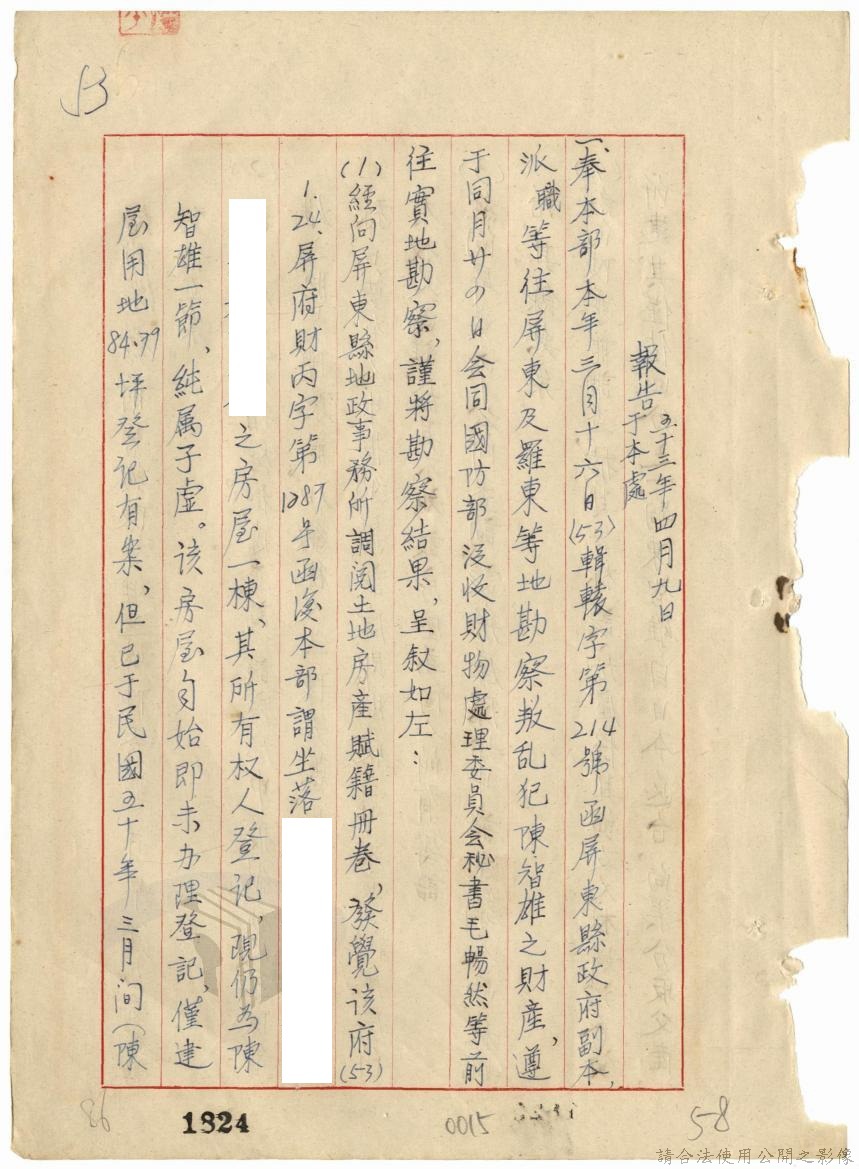 報告 五十三年四月九日
于本處
一、奉本部本年三月十六日(53)輯轅字第214號函屏東縣政府副本,
派職等往屏東及羅東等地勘察叛乱犯陳智雄之財產,遵
于同月廿四日会同國防部沒收財物處理委員会秘書毛暢然等前
往實地勘察,謹將勘察結果,呈敘如左:
(1)經向屏東縣地政事務所調閱土地房產賦籍冊卷,發覺該府(53)
1.24.屏府財丙字第1087号函復本部謂坐落
之房屋一棟、其所有权人登记,現仍為陳
智雄一節、純属子虛。该房屋自始即未办理登記,僅建
屋用地84.79坪登记有案,但已于民國五十年三月间(陳
53
86
1824
0015
58
請合法使用公開之影像